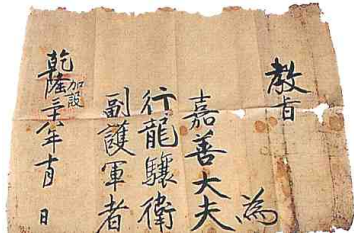 教旨
為
嘉善大夫
行龍驤衛
副護軍者
加設
乾隆年月 日